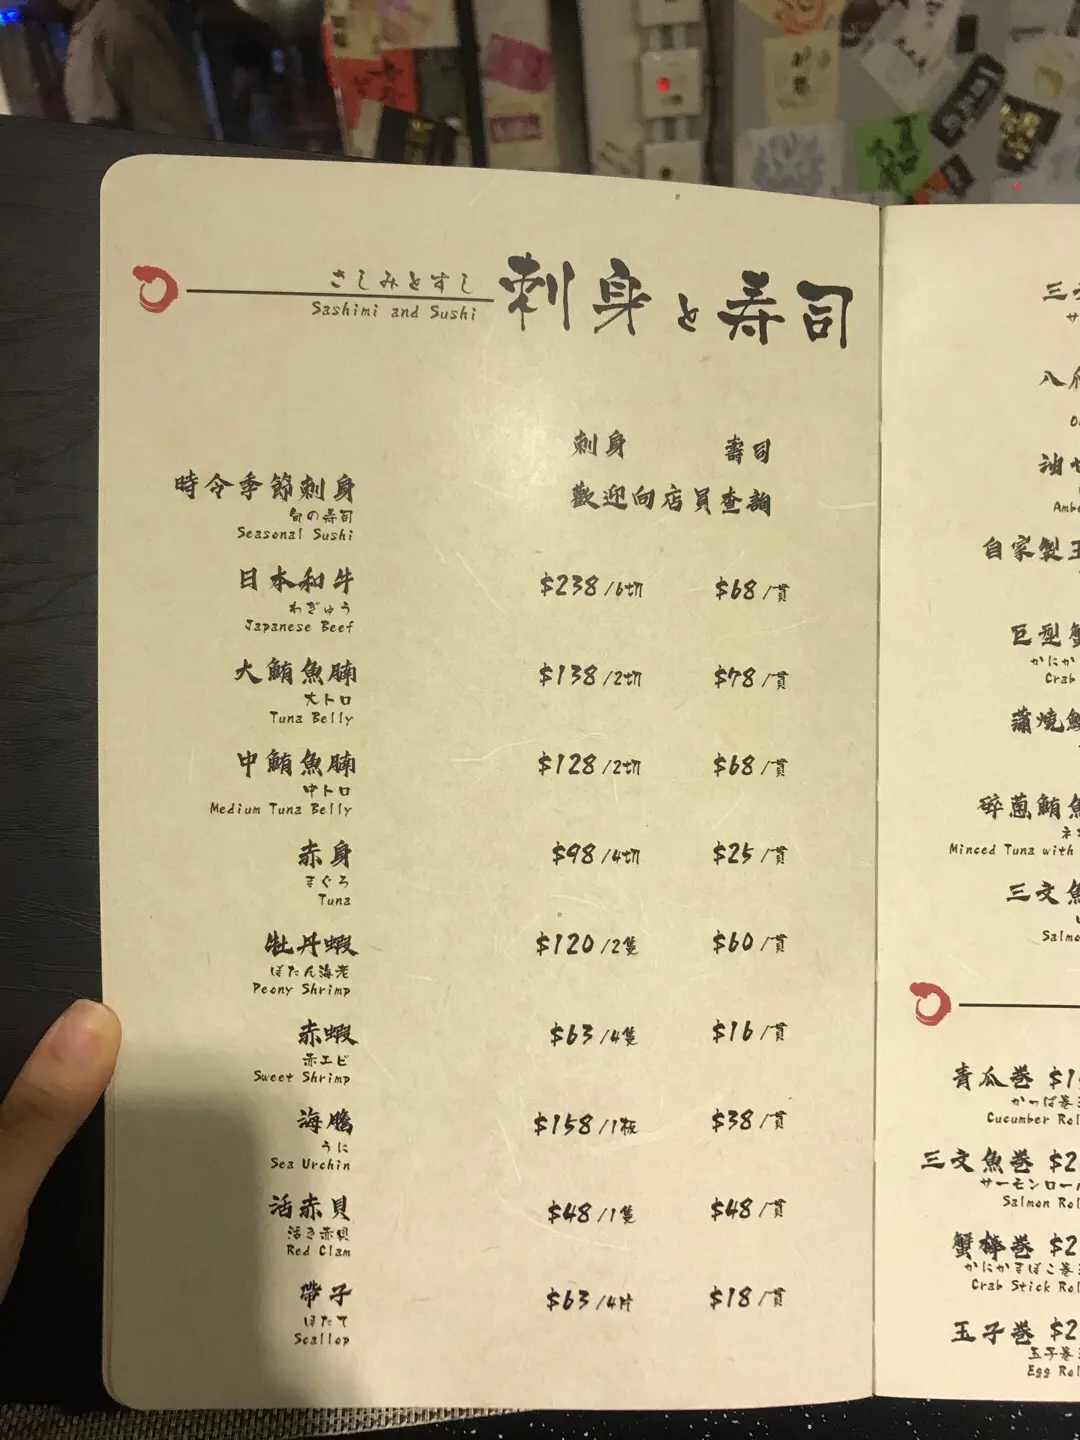 さしみとすし
Sashimi and Sushi
刺身と寿司
刺身 壽司
時令季節刺身 歡迎向店員查詢
旬の寿司
Seasonal Sushi
日本和牛 $238/6切 $68/貫
わぎゅう
Japanese Beef
大鮪魚腩 $138/2切 $78/貫
大トロ
Tuna Belly
中鮪魚腩 $128/2切 $68/貫
中トロ
Medium Tuna Belly
赤身 $98/4切 $25/貫
まぐろ
Tuna
牡丹蝦 $120/2隻 $60/貫
ぼたん海老
Peony Shrimp
赤蝦 $63/4隻 $16/貫
赤エビ
Sweet Shrimp
海膽 $158/1板 $38/貫
うに
Sea Urchin
活赤貝 $48/1隻 $48/貫
活き赤貝
Red Clam
帶子 $63/4片 $18/貫
ほたて
Scallop
三文
サ
八爪
油甘
自家製玉
巨型蟹
かにか
Crab
蒲燒鰻
碎蔥鮪魚
ネ
Minced Tuna with
三文魚
Salmo
青瓜巻 $1
かっぱ巻
Cucumber Rol
三文魚巻 $2
サーモンロール
Salmon Rol
蟹棒巻 $2
かにかまぼこ巻
Crab Stick Rol
玉子巻 $2
玉子巻
Egg Rol